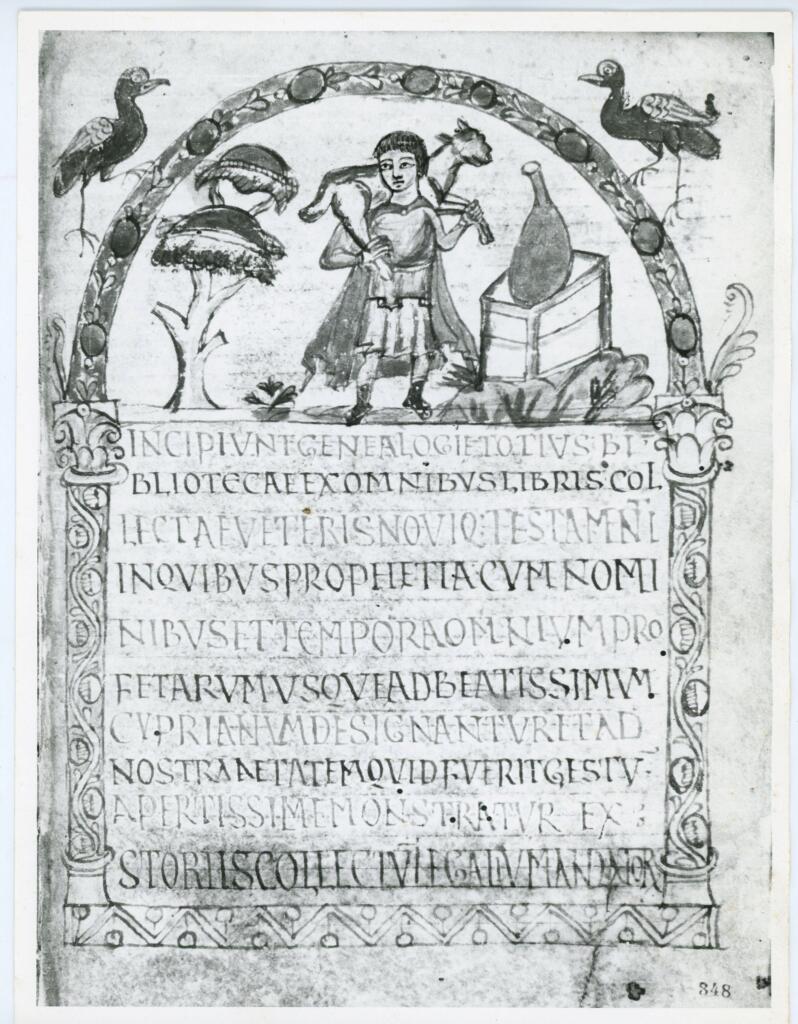 INCIPIVNT GENEALOGIE TOTIVS BI
BLIOTECAE EX OMNIBVS LIBRIS COL
LECTAE VETERIS NOVIQ: TESTAMENTI
IN QVIBVS PROPHETIA CVM NOMI
NIBVS ET TEMPORA OMNIVM PRO
FETARVM VSQVE AD BEATISSIMVM
CYPRIANVM DESIGNANTVR ET AD
NOSTRA AETATEM QVID FVERIT GESTV
APERTISSIME MONSTRATVR EX
STORIIS COLLECTV
348